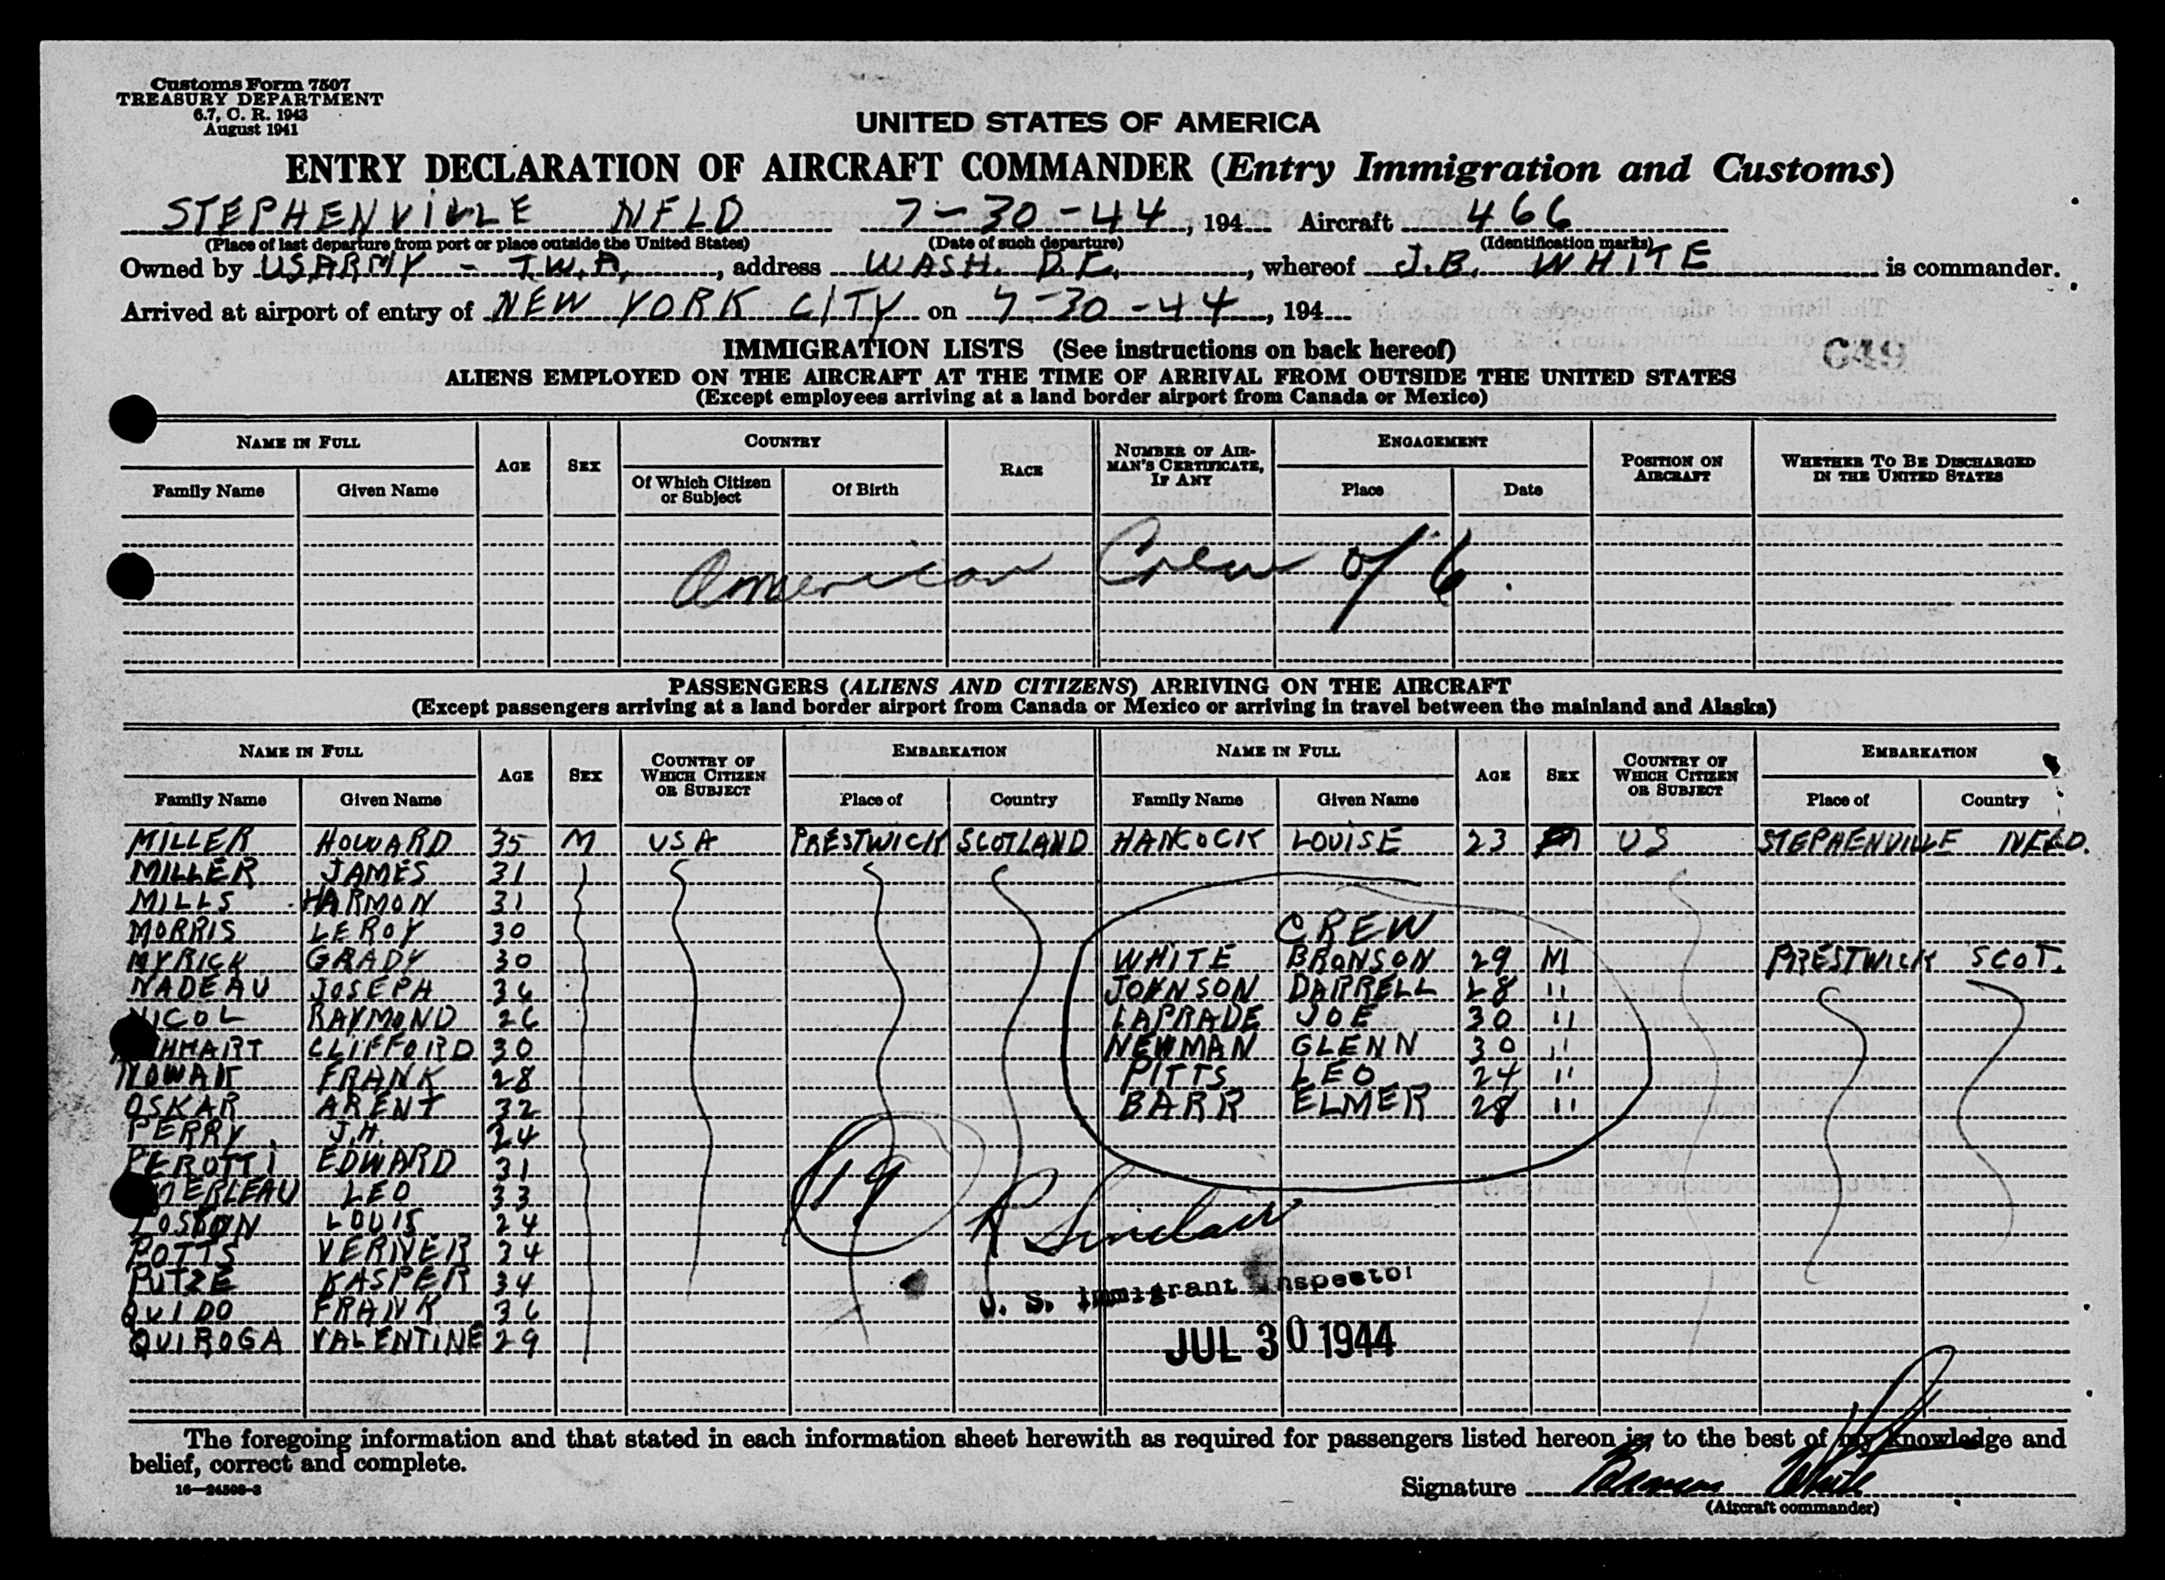 Customs Form 7507
TREASURY DEPARTMENT
6.7, C. R. 1943
August 1941
UNITED STATES OF AMERICA
ENTRY DECLARATION OF AIRCRAFT COMMANDER (Entry Immigration and Customs)
STEPHENVILLE NFLD 7-30-44, 194 Aircraft 466
(Place of last departure from port or place outside the United States) (Date of such departure) (Identification marks)
Owned by US ARMY - T.W.A., address WASH. D.C., whereof J.B. WHITE is commander.
Arrived at airport of entry of NEW YORK CITY on 7-30-44, 194
IMMIGRATION LISTS (See instructions on back hereof)
649
ALIENS EMPLOYED ON THE AIRCRAFT AT THE TIME OF ARRIVAL FROM OUTSIDE THE UNITED STATES
(Except employees arriving at a land border airport from Canada or Mexico)
NAME IN FULL AGE SEX COUNTRY RACE NUMBER OF AIRMAN'S CERTIFICATE, IF ANY ENGAGEMENT POSITION ON AIRCRAFT WHETHER TO BE DISCHARGED IN THE UNITED STATES
Family Name Given Name Of Which Citizen or Subject Of Birth Place Date
American Crew of 6.
PASSENGERS (ALIENS AND CITIZENS) ARRIVING ON THE AIRCRAFT
(Except passengers arriving at a land border airport from Canada or Mexico or arriving in travel between the mainland and Alaska)
NAME IN FULL AGE SEX COUNTRY OF WHICH CITIZEN OR SUBJECT EMBARKATION NAME IN FULL AGE SEX COUNTRY OF WHICH CITIZEN OR SUBJECT EMBARKATION
Family Name Given Name Place of Country Family Name Given Name Place of Country
MILLER HOWARD 35 M USA PRESTWICK SCOTLAND HANCOCK LOUISE 23 US STEPHENVILLE NFLD.
MILLER JAMES 31
MILLS HARMON 31
MORRIS LEROY 30 CREW
MYRICK GRADY 30 WHITE BRONSON 29 M PRESTWICK SCOT.
NADEAU JOSEPH 36 JOHNSON DARRELL 28 "
NICOL RAYMOND 26 LAPRADE JOE 30 "
CLIFFORD 30 NEWMAN GLENN 30 "
NOWAK FRANK 28 PITTS LEO 24 "
OSKAR ARENT 32 BARR ELMER 28 "
PERRY J.H. 24
PEROTTI EDWARD 31
LEO 33
LOUIS 24
POTTS VERNER 34
PUTZE KASPER 34
QUIDO FRANK 36
QUIROGA VALENTINE 29
19
R Sinclair
U. S. Immigrant Inspector
JUL 30 1944
The foregoing information and that stated in each information sheet herewith as required for passengers listed hereon is, to the best of my knowledge and
belief, correct and complete.
16—24508-3
Signature Bronson White
(Aircraft commander)